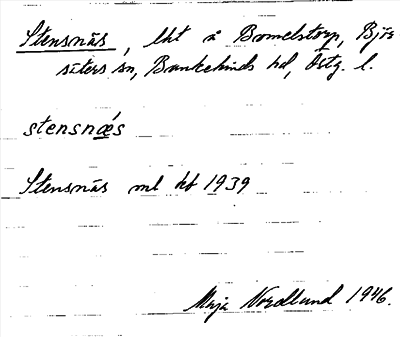 Stensnäs, lht å Bomelstorp, Björ
säters sn, Bankekinds hd, Östg. l.
stensnǽs
Stensnäs ml kb 1939
Maja Nordlund 1946.